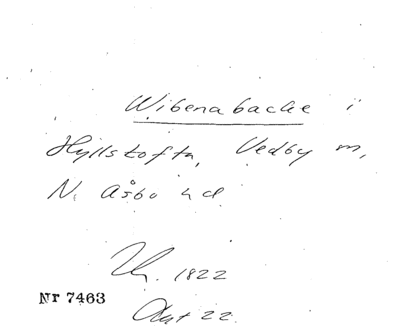 Wibenabacke i
Hyllstofta, Vedby sn,
N. Åsbo hd
1822
Nr 7463
22.